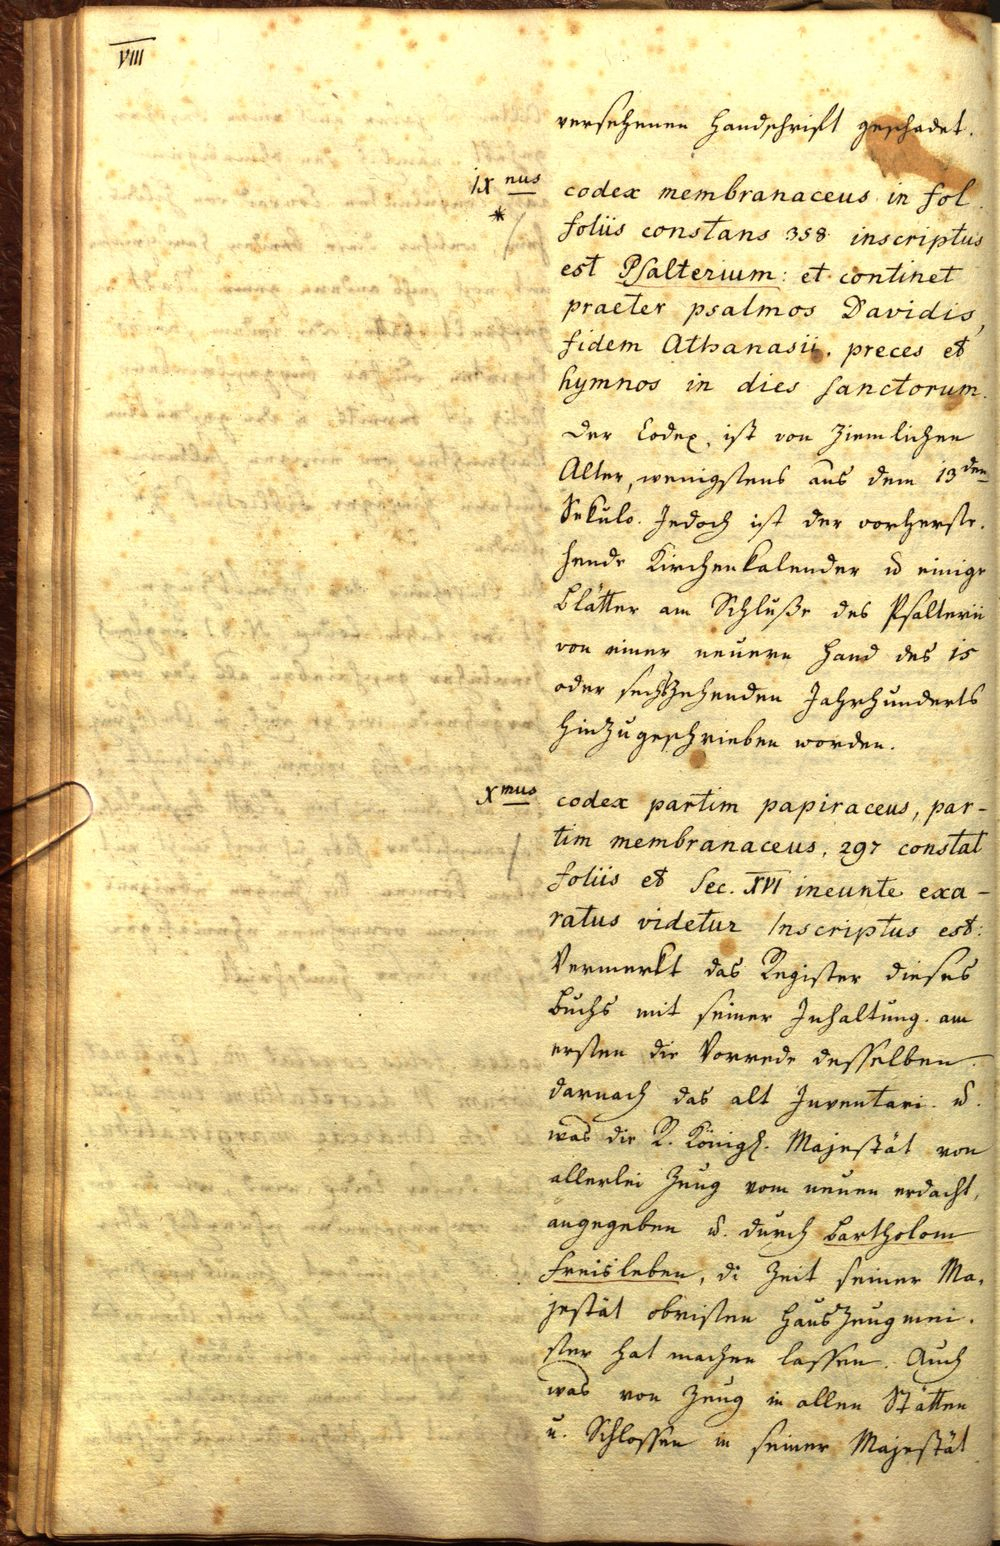 VIII
versehenen Handschrift geschadet.
IX nus
codex membranaceus in fol.
foliis constans 358 inscriptus
est Psalterium: et continet
praeter psalmos Davidis,
fidem Athanasii, preces et
hymnos in dies sanctorum.
Der Codex, ist von ziemlichen
Alter, wenigstens aus dem 13den
Sekulo. Jedoch ist der vorherste-
hende Kirchenkalender u einige
Blätter am Schluße des Psalterii
von einer neuern Hand des 15
oder sechszehenden Jahrhunderts
hinzugeschrieben worden.
X mus
codex partim papiraceus, par-
tim membranaceus, 297 constat
foliis et Sec. XVI ineunte exa-
ratus videtur Inscriptus est:
Vermerkt das Register dieses
Buchs mit seiner Inhaltung. am
ersten die Vorrede desselben.
darnach das alt Inventari. u.
was die R. Königl. Majestät von
allerlei Zeug vom neuen erdacht,
angegeben u. durch Bartholom
Freisleben, di Zeit seiner Ma-
jestät obristen Hauszeugmei-
ster hat machen lassen. Auch
was von Zeug in allen Stätten
u. Schlossen in seiner Majestät